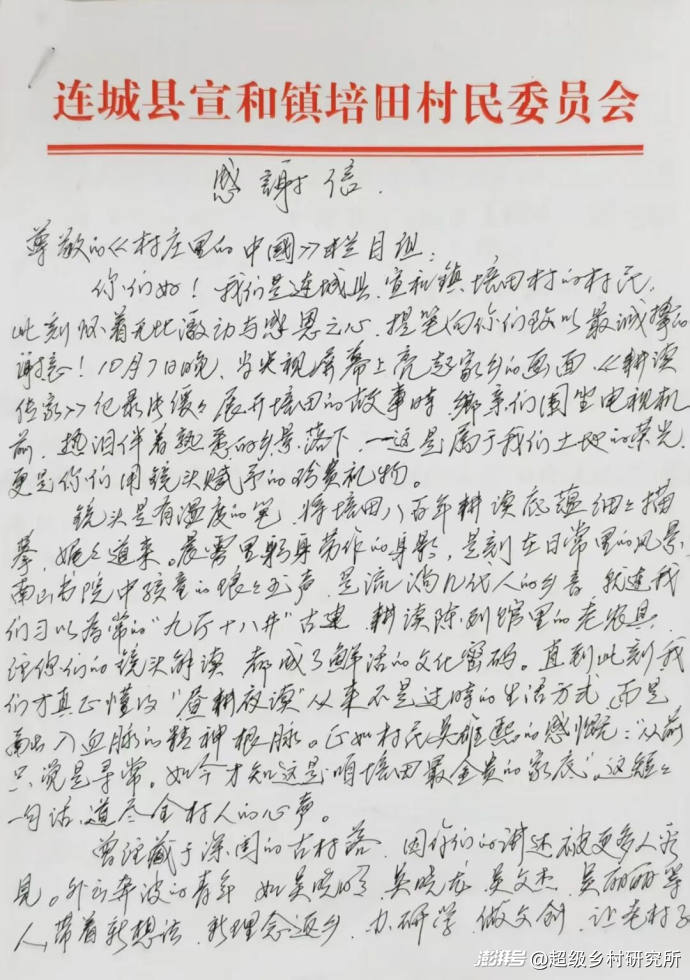 连城县宣和镇培田村民委员会
感謝信.
尊敬的《村庄里的中國》栏目组:
你们好!我们是连城县宣和鎮培田村的村民,
此刻怀着无比激动与感恩之心,提笔向你们致以最诚摯的
謝意!10月7日晚,当央视屏幕上亮起家乡的画面,《耕读
传家》纪录片缓々展开培田的故事時,鄉亲们围坐电视机
前,热泪伴着熟悉的乡景落下,一这是属于我们土地的荣光,
更是你们用镜头赋予的珍贵礼物。
鏡头是有温度的笔,将培田八百年耕读底蕴细々描
摹,娓々道来。晨雾里躬身劳作的身影,是刻在日常里的风景,
南山书院中孩童的琅々书声,是流淌几代人的乡音,就连我
们习以为常的“九厅十八井”古建,耕读陈列馆里的老农具,
经你们的镜头解读,都成了鲜活的文化密码。直到此刻我
们才真正懂得“昼耕夜读”从来不是过時的生活方式,而是
融入血脉的精神根脉。正如村民吴雄熙的感慨:“从前
只说是寻常。如今才知这是咱培田最金贵的家底”。这短々
一句话,道尽全村人的心声。
曾经藏于深闺的古村落,因你们的讲述被更多人看
见。外出奔波的青年,如吴晓明,吴晓龙,吴文杰,吴丽丽等
人,带着新想法,新理念返乡,办研学,做文创,让老村子
澎湃号 @超级乡村研究所